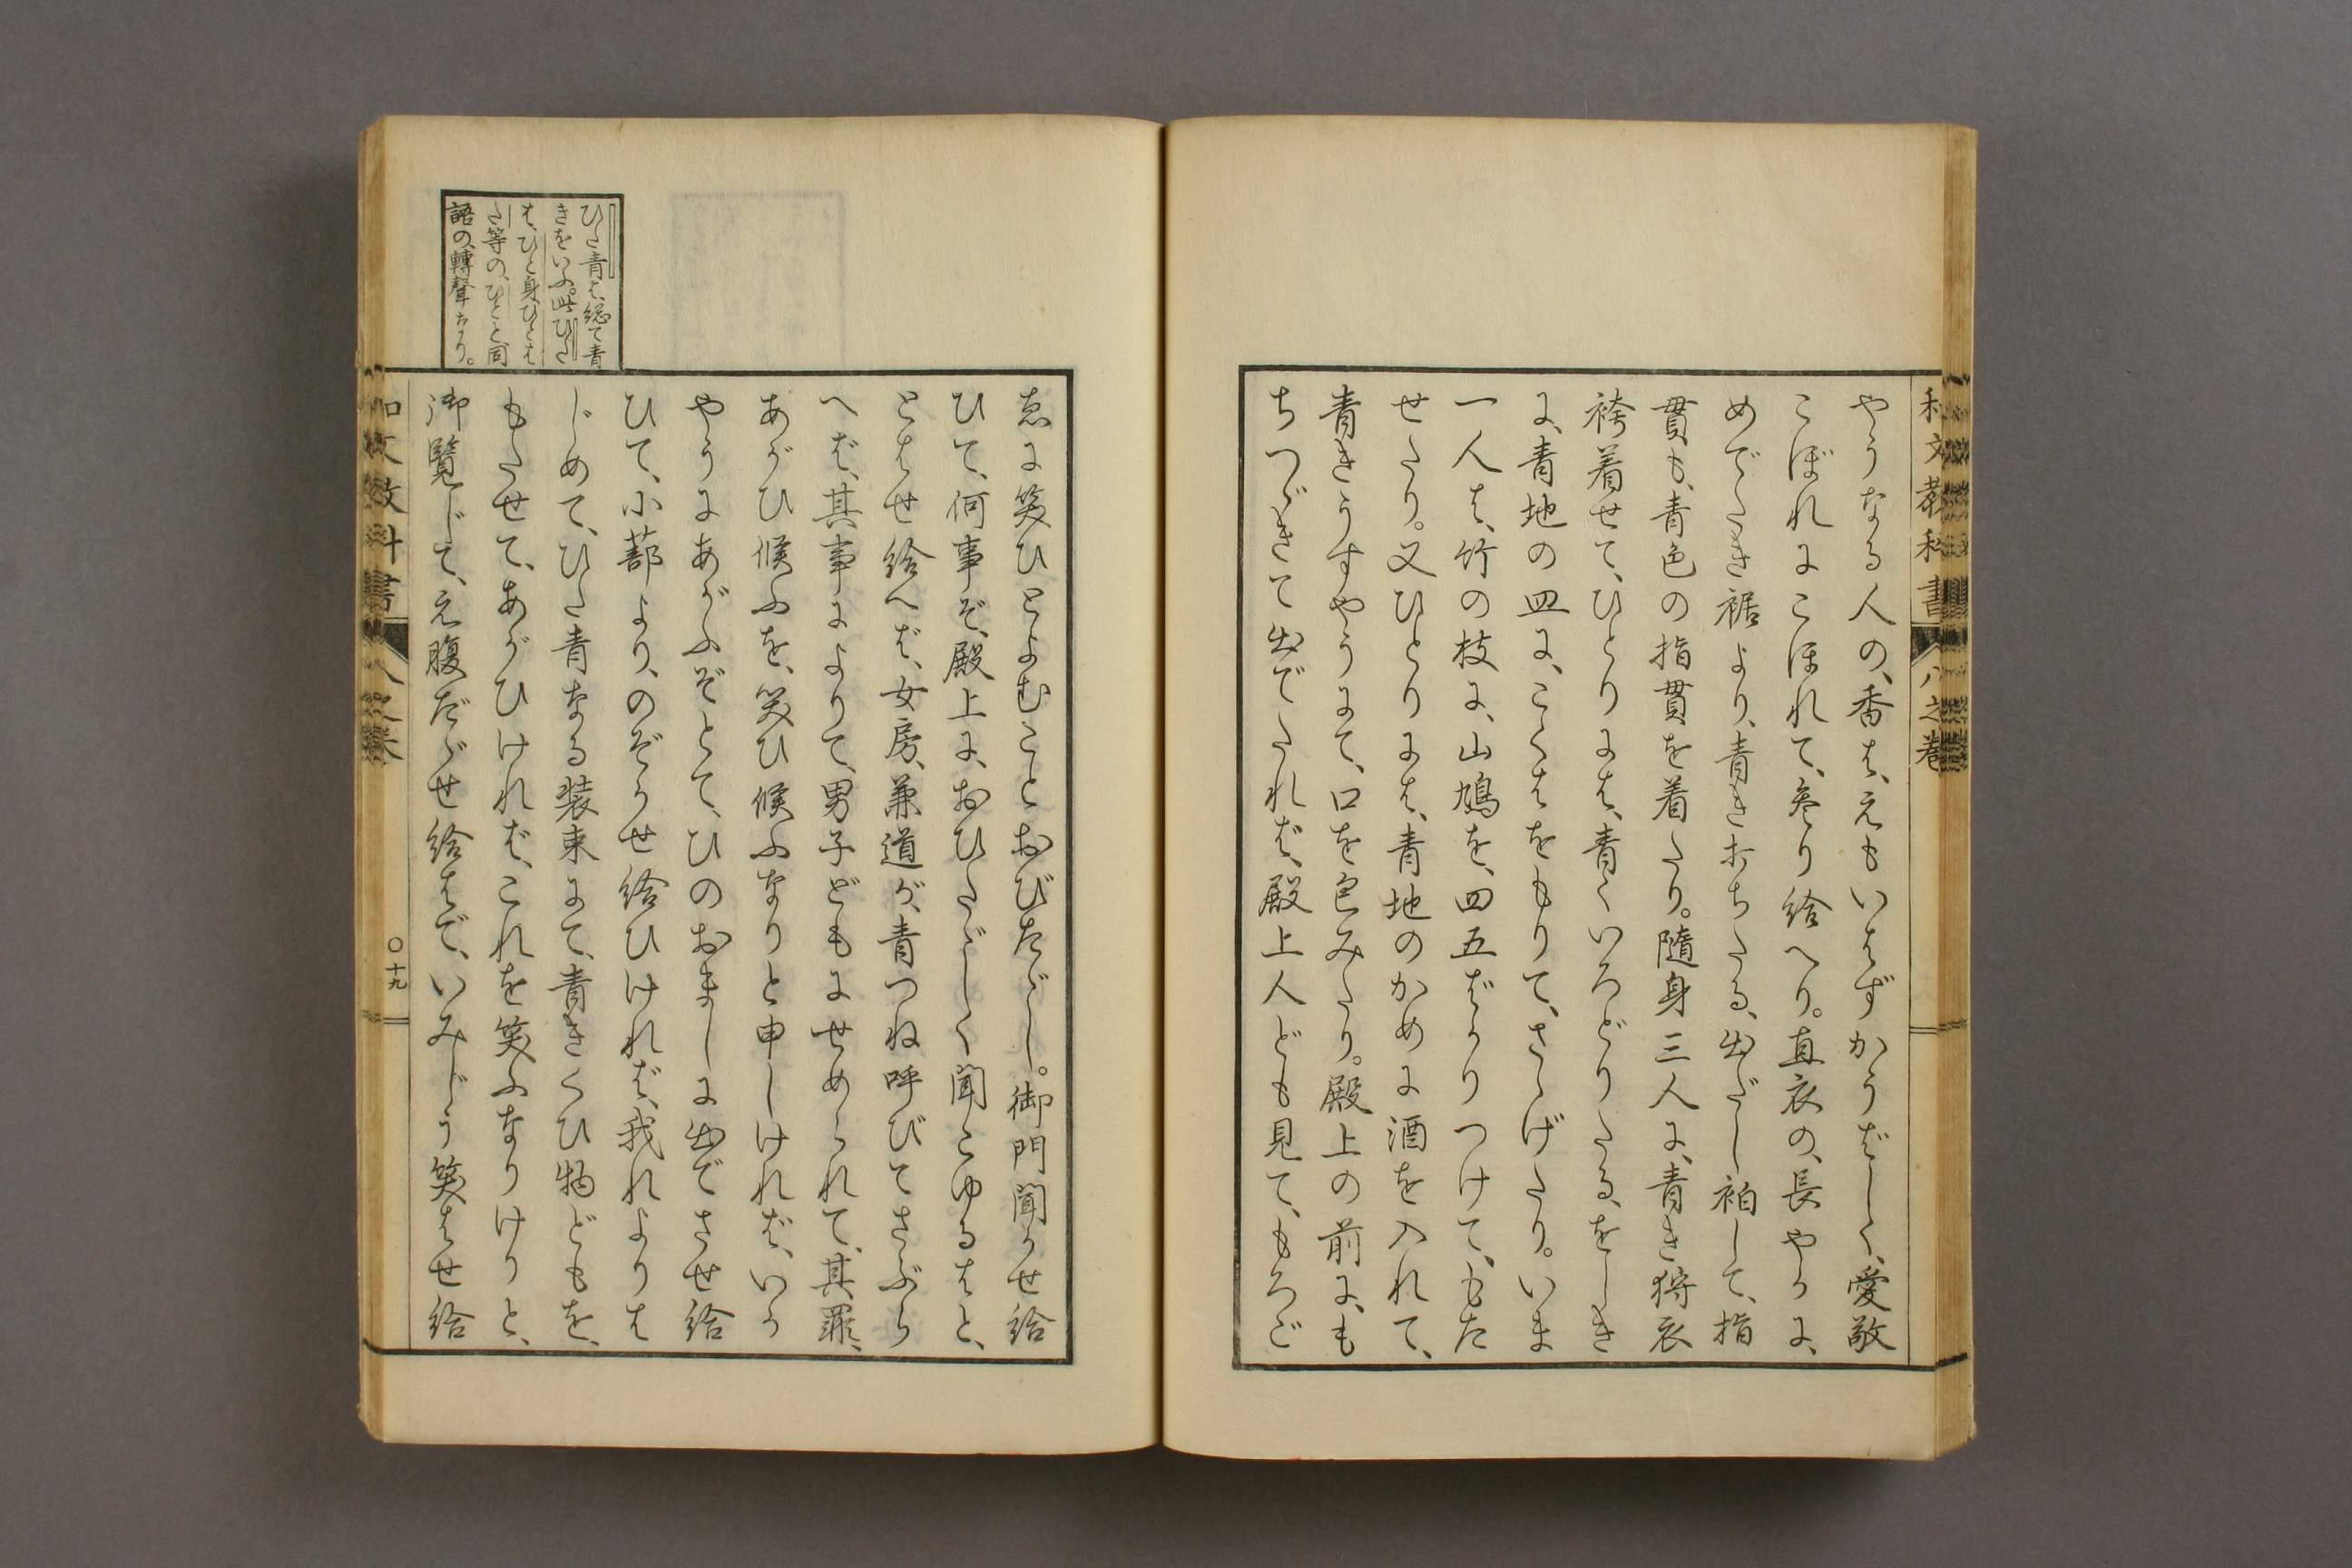 和文教科書 八之巻
やうなる人の、香は、えもいはずかうばしく、愛敬
こぼれにこほれて、参り給へり。直衣の、長やかに、
めでたき裾より、青きおちたる、出だし袙して、指
貫も、青色の指貫を着たり。隨身三人に、青き狩衣
袴着せて、ひとりには、青くいろどりたる、をしき
に、青地の皿に、こくはをもりて、さゝげたり。いま
一人は、竹の枝に、山鳩を、四五ばかりつけて、もた
せたり。又ひとりには、青地のかめに酒を入れて、
青きうすやうにて、口を包みたり。殿上の前に、も
ちつゞきて出でたれば、殿上人ども見て、もろご
ゑに笑ひとよむことおびたゞし。御門聞かせ給
ひて、何事ぞ、殿上に、おひたゞしく聞こゆるはと、
とはせ給へば、女房、兼道が、青つね呼びてさぶら
へば、其事によりて、男子どもにせめられて、其罪、
あがひ候ふを、笑ひ候ふなりと申しければ、いか
やうにあがふぞとて、ひのおましに出でさせ給
ひて、小蔀より、のぞかせ給ひければ、我れよりは
じめて、ひた青なる装束にて、青きくひ物どもを、
もたせて、あがひければ、これを笑ふなりけりと、
御覧じて、え腹だゝせ給はで、いみじう笑はせ給
ひた青は、総て青
きをいふ。此ひた
は、ひと身ひとは
た等の、ひとと同
語の、轉聲なり。
和文教科書 八之巻
〇十九